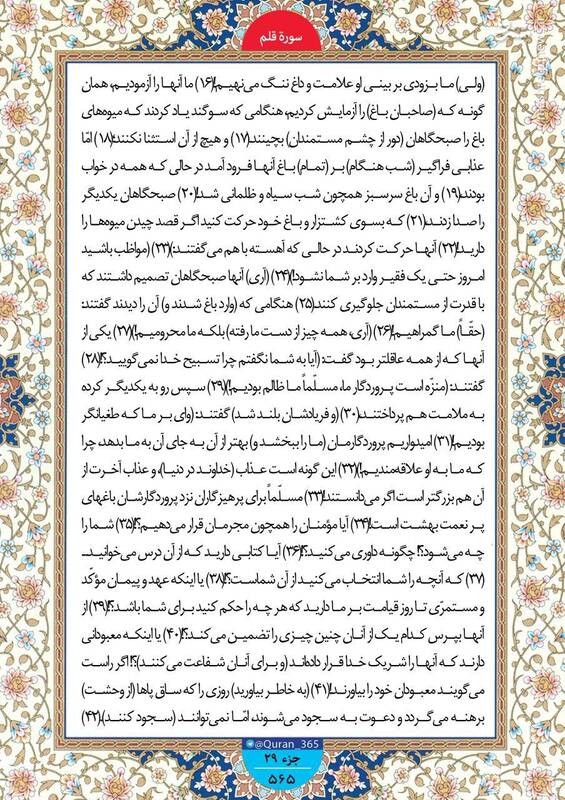 سورة قلم
(ولی) ما بزودی بر بینی او علامت و داغ ننگ می‌نهیم!(۱۶) ما آنها را آزمودیم، همان
گونه که (صاحبان باغ) را آزمایش کردیم، هنگامی که سوگند یاد کردند که میوه‌های
باغ را صبحگاهان (دور از چشم مستمندان) بچینند.(۱۷) و هیچ از آن استثنا نکنند؛(۱۸) امّا
عذابی فراگیر (شب هنگام) بر (تمام) باغ آنها فرود آمد در حالی که همه در خواب
بودند،(۱۹) و آن باغ سرسبز همچون شب سیاه و ظلمانی شد!(۲۰) صبحگاهان یکدیگر
را صدا زدند،(۲۱) که بسوی کشتزار و باغ خود حرکت کنید اگر قصد چیدن میوه‌ها را
دارید!(۲۲) آنها حرکت کردند در حالی که آهسته با هم می‌گفتند:(۲۳) (مواظب باشید
امروز حتی یک فقیر وارد بر شما نشود!)(۲۴) (آری) آنها صبحگاهان تصمیم داشتند که
با قدرت از مستمندان جلوگیری کنند.(۲۵) هنگامی که (وارد باغ شدند و) آن را دیدند گفتند:
(حقّاً) ما گمراهیم!(۲۶) (آری، همه چیز از دست ما رفته) بلکه ما محرومیم!)(۲۷) یکی از
آنها که از همه عاقلتر بود گفت: (آیا به شما نگفتم چرا تسبیح خدا نمی‌گویید؟!(۲۸)
گفتند: (منزّه است پروردگار ما، مسلّماً ما ظالم بودیم!)(۲۹) سپس رو به یکدیگر کرده
به ملامت هم پرداختند،(۳۰) (و فریادشان بلند شد) گفتند: (وای بر ما که طغیانگر
بودیم!(۳۱) امیدواریم پروردگارمان (ما را ببخشد و) بهتر از آن به جای آن به ما بدهد، چرا
که ما به او علاقه‌مندیم!)(۳۲) این گونه است عذاب (خداوند در دنیا)، و عذاب آخرت از
آن هم بزرگتر است اگر می‌دانستند!(۳۳) مسلّماً برای پرهیزگاران نزد پروردگارشان باغهای
پر نعمت بهشت است!(۳۴) آیا مؤمنان را همچون مجرمان قرار می‌دهیم؟!(۳۵) شما را
چه می‌شود؟! چگونه داوری می‌کنید؟!(۳۶) آیا کتابی دارید که از آن درس می‌خوانید...
(۳۷) که آنچه را شما انتخاب می‌کنید از آن شماست؟!(۳۸) یا اینکه عهد و پیمان مؤکّد
و مستمرّی تا روز قیامت بر ما دارید که هر چه را حکم کنید برای شما باشد؟!(۳۹) از
آنها بپرس کدام یک از آنان چنین چیزی را تضمین می‌کند؟!(۴۰) یا اینکه معبودانی
دارند که آنها را شریک خدا قرار داده‌اند (و برای آنان شفاعت می‌کنند)؟! اگر راست
می‌گویند معبودان خود را بیاورند!(۴۱) (به خاطر بیاورید) روزی را که ساق پاها (از وحشت)
برهنه می‌گردد و دعوت به سجود می‌شوند، امّا نمی‌توانند (سجود کنند).(۴۲)
@Quran_365
جزء ۲۹
۵۶۵